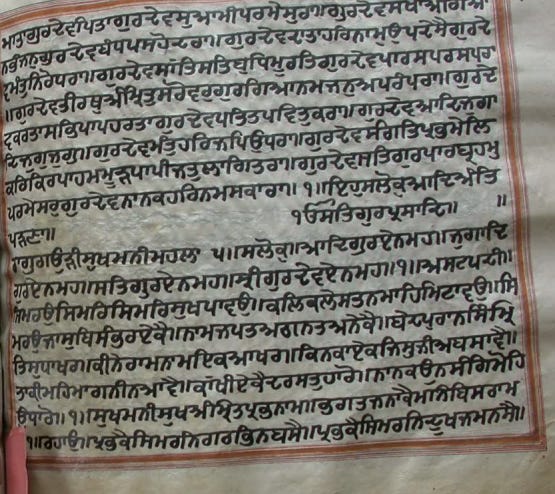 ਮਾਤਾਗੁਰਦੇਵਪਿਤਾਗੁਰਦੇਵਸੁਆਮੀਪਰਮੇਸੁਰਾ॥ਗੁਰਦੇਵਸਖਾਅਗਿਆ
ਨਭੰਜਨੁਗੁਰਦੇਵਬੰਧਪਸਹੋਦਰਾ॥ਗੁਰਦੇਵਦਾਤਾਹਰਿਨਾਮੁਉਪਦੇਸੈਗੁਰਦੇ
ਵਮੰਤੁਨਿਰੋਧਰਾ॥ਗੁਰਦੇਵਸਾਂਤਿਸਤਿਬੁਧਿਮੂਰਤਿਗੁਰਦੇਵਪਾਰਸਪਰਸਪਰਾ
॥ਗੁਰਦੇਵਤੀਰਥੁਅੰਮ੍ਰਿਤਸਰੋਵਰੁਗੁਰਗਿਆਨਮਜਨਅਪਰੰਪਰਾ॥ਗੁਰਦੇ
ਵਕਰਤਾਸਭਿਪਾਪਹਰਤਾਗੁਰਦੇਵਪਤਿਤਪਵਿਤਕਰਾ॥ਗੁਰਦੇਵਆਦਿਜੁਗਾ
ਦਿਜੁਗੁਜੁਗੁ॥ਗੁਰਦੇਵਮੰਤੁਹਰਿਜਪਿਉਧਰਾ॥ਗੁਰਦੇਵਸੰਗਤਿਪ੍ਰਭਮੇਲਿ
ਕਰਿਕਿਰਪਾਹਮਮੂੜਪਾਪੀਜਿਤੁਲਗਿਤਰਾ॥ਗੁਰਦੇਵਸਤਿਗੁਰਪਾਰਬ੍ਰਹਮੁ
ਪਰਮੇਸਰੁਗੁਰਦੇਵਨਾਨਕਹਰਿਨਮਸਕਾਰਾ॥੧॥ਇਹੁਸਲੋਕੁਆਦਿਅੰਤਿ
ਪੜਣਾ॥ ੴਸਤਿਗੁਰਪ੍ਰਸਾਦਿ॥ ॥
ਰਾਗੁਗਉੜੀਸੁਖਮਨੀਮਹਲਾ ੫॥ਸਲੋਕੁ॥ਆਦਿਗੁਰਏਨਮਹ॥ਜੁਗਾਦਿ
ਗੁਰਏਨਮਹ॥ਸਤਿਗੁਰਏਨਮਹ॥ਸ੍ਰੀਗੁਰਦੇਵਏਨਮਹ॥੧॥ਅਸਟਪਦੀ॥
ਸਿਮਰਉਸਿਮਰਿਸਿਮਰਿਸੁਖਪਾਵਉ॥ਕਲਿਕਲੇਸਤਨਮਾਹਿਮਿਟਾਵਉ॥ਸਿ
ਮਰਉਜਾਸੁਬਿਸੁੰਭਰਏਕੈ॥ਨਾਮਜਪਤਅਗਨਤਅਨੇਕੈ॥ਬੇਦਪੁਰਾਨਸਿੰਮ੍ਰਿ
ਤਿਸੁਧਾਖਰ॥ਕੀਨੇਰਾਮਨਾਮਇਕਆਖਰ॥ਕਿਨਕਾਏਕਜਿਸੁਜੀਅਬਸਾਵੈ॥
ਤਾਕੀਮਹਿਮਾਗਨੀਨਆਵੈ॥ਕਾਂਖੀਏਕੈਦਰਸਤੁਹਾਰੋ॥ਨਾਨਕਉਨਸੰਗਿਮੋਹਿ
ਉਧਾਰੋ॥੧॥ਸੁਖਮਨੀਸੁਖਅੰਮ੍ਰਿਤਪ੍ਰਭਨਾਮ॥ਭਗਤਜਨਾਕੈਮਨਿਬਿਸਰਾਮ
॥੧॥ਰਹਾਉ॥ਪ੍ਰਭਕੈਸਿਮਰਨਿਗਰਭਿਨਬਸੈ॥ਪ੍ਰਭਕੈਸਿਮਰਨਿਦੂਖਜਮਨਸੈ॥